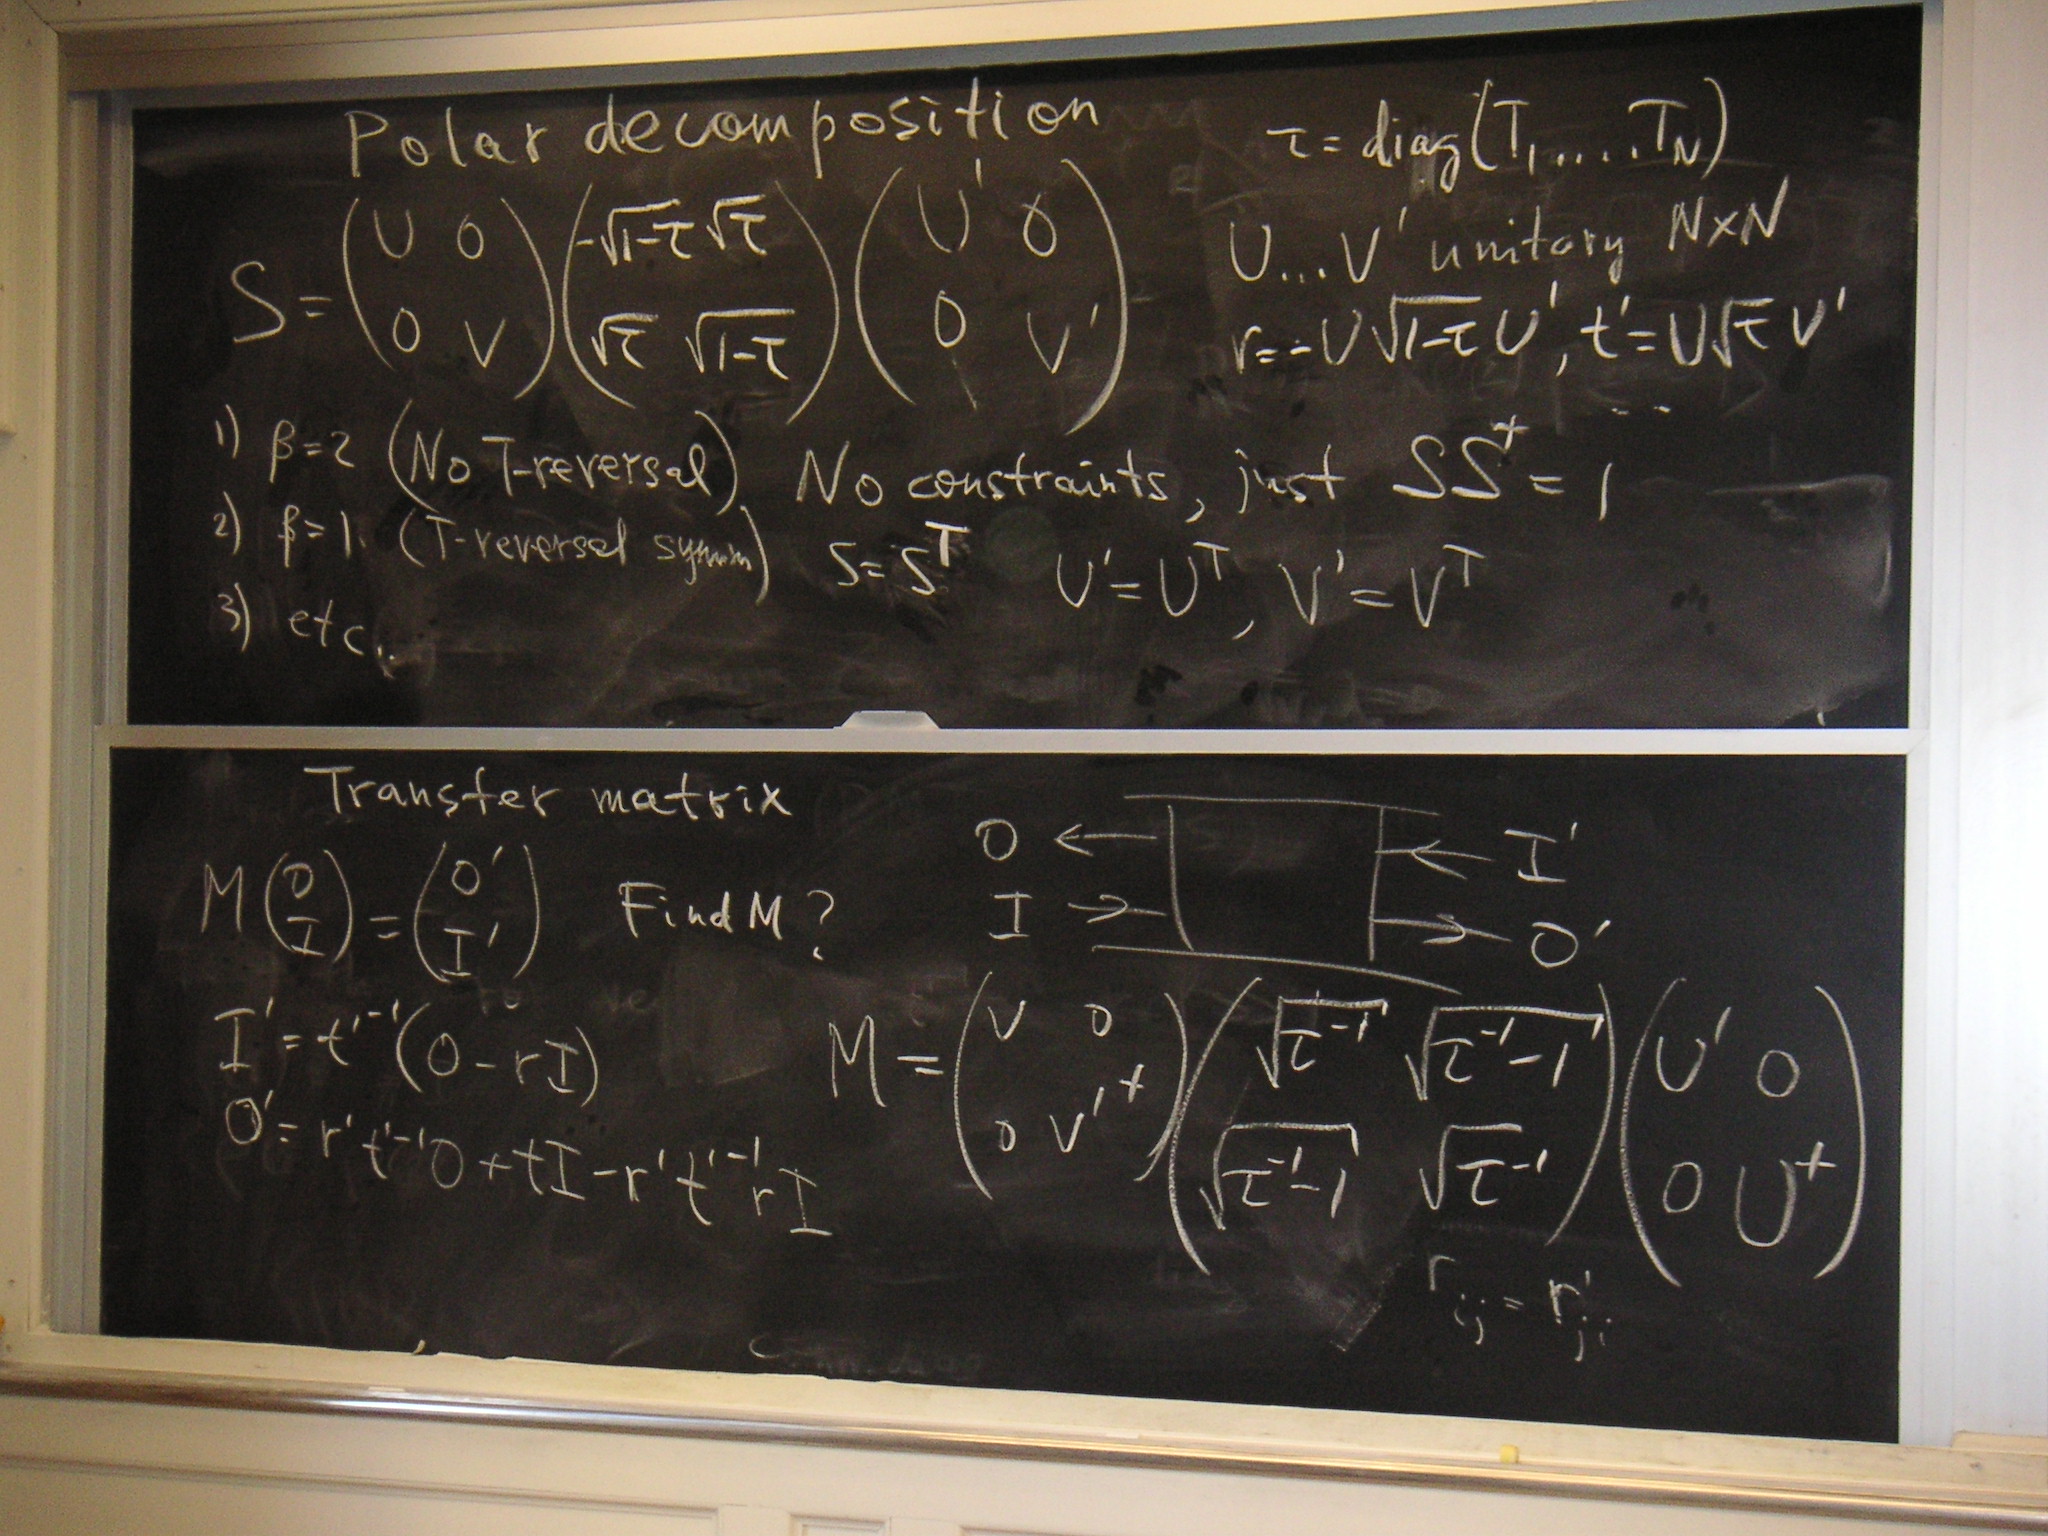 Polar decomposition
τ = diag(T₁, .... T_N)
S = (U 0; 0 V) (-√(1-τ) √τ; √τ √(1-τ)) (U' 0; 0 V')
U...V' unitary N×N
r = -U√(1-τ) U', t' = U√τ V'
...
1) β=2 (No T-reversal) No constraints, just SS⁺ = 1
2) β=1. (T-reversal symm) S = Sᵀ U' = Uᵀ, V' = Vᵀ
3) etc...
Transfer matrix
M (O; I) = (O'; I') Find M?
O ← ← I'
I → → O'
I' = t'⁻¹(O - rI)
O' = r't'⁻¹O + tI - r't'⁻¹rI
M = (V 0; 0 V'⁺) (√τ⁻¹ √(τ⁻¹-1); √(τ⁻¹-1) √τ⁻¹) (U' 0; 0 U⁺)
r_ij = r'_ji